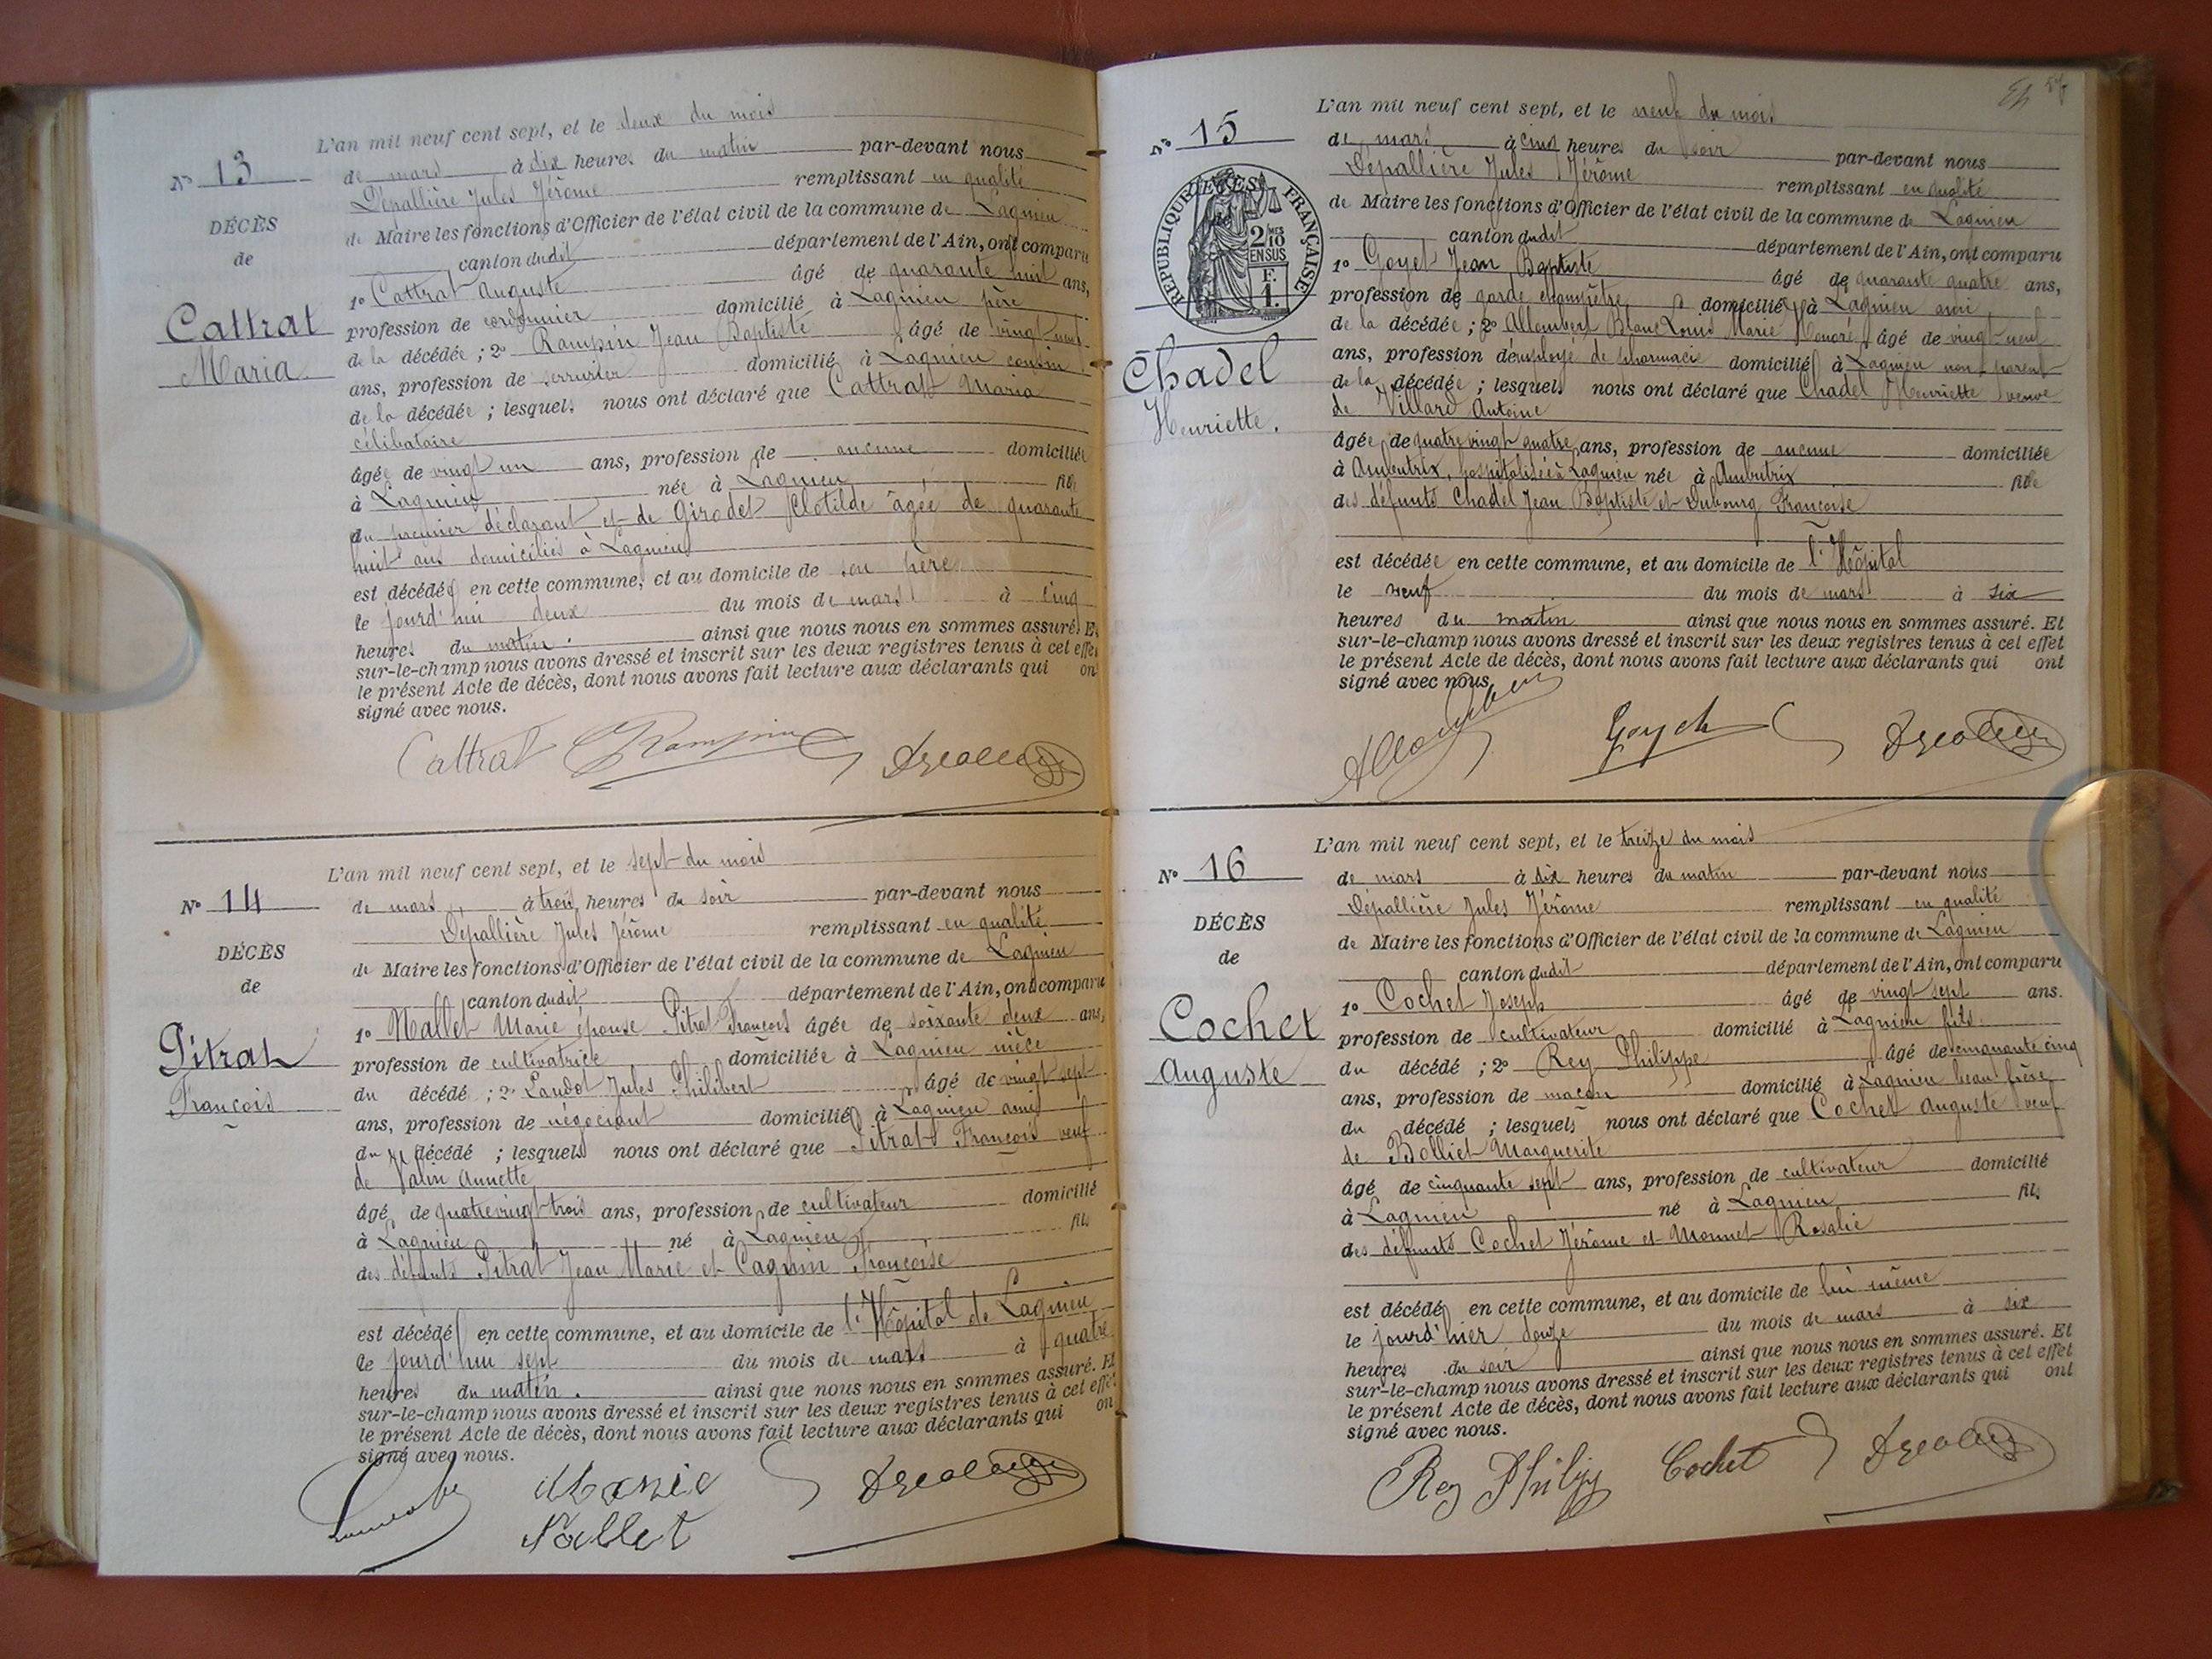 L'an mil neuf cent sept, et le deux du mois
N° 13
de mars à dix heures du matin par-devant nous
Dépallière Jules Jérôme remplissant en qualité
DÉCÈS
de Maire les fonctions d'Officier de l'état civil de la commune de Lagnieu
de
canton dudit département de l'Ain, ont comparu
1° Cattrat Auguste âgé de quarante huit ans,
Cattrat
profession de cordonnier domicilié à Lagnieu père
Maria
de la décédée ; 2° Rampin Jean Baptiste âgé de vingt neuf
ans, profession de serrurier domicilié à Lagnieu cousin
de la décédée ; lesquels nous ont déclaré que Cattrat Maria
célibataire
âgée de vingt un ans, profession de aucune domiciliée
à Lagnieu née à Lagnieu fille
du premier déclarant et de Girodet Clotilde âgée de quarante
huit ans domiciliés à Lagnieu
est décédée en cette commune, et au domicile de son père
le jourd'hui deux du mois de mars à cinq
heures du matin. ainsi que nous nous en sommes assuré. Et
sur-le-champ nous avons dressé et inscrit sur les deux registres tenus à cet effet
le présent Acte de décès, dont nous avons fait lecture aux déclarants qui ont
signé avec nous.
Cattrat Rampin
L'an mil neuf cent sept, et le sept du mois
N° 14
de mars à trois heures du soir par-devant nous
Dépallière Jules Jérôme remplissant en qualité
DÉCÈS
de Maire les fonctions d'Officier de l'état civil de la commune de Lagnieu
de
canton dudit département de l'Ain, ont comparu
1° Mallet Marie épouse Pitrat François âgée de soixante deux ans,
Pitrat
profession de cultivatrice domiciliée à Lagnieu nièce
François
du décédé ; 2° Landot Jules Philibert âgé de vingt sept
ans, profession de négociant domicilié à Lagnieu ami
du décédé ; lesquels nous ont déclaré que Pitrat François veuf
de Valin Annette
âgé de quatre vingt trois ans, profession de cultivateur domicilié
à Lagnieu né à Lagnieu fils
des défunts Pitrat Jean Marie et Cagnin Françoise
est décédé en cette commune, et au domicile de l'Hôpital de Lagnieu
le jourd'hui sept du mois de mars à quatre
heures du matin. ainsi que nous nous en sommes assuré. Et
sur-le-champ nous avons dressé et inscrit sur les deux registres tenus à cet effet
le présent Acte de décès, dont nous avons fait lecture aux déclarants qui ont
signé avec nous.
Marie
Mallet
L'an mil neuf cent sept, et le neuf du mois
N° 15
de mars à cinq heures du soir par-devant nous
Dépallière Jules Jérôme remplissant en qualité
RÉPUBLIQUE FRANÇAISE
DÉCÈS
de
2/10 MES
EN SUS
F.
1.
de Maire les fonctions d'Officier de l'état civil de la commune de Lagnieu
canton dudit département de l'Ain, ont comparu
1° Goyet Jean Baptiste âgé de quarante quatre ans,
profession de garde champêtre domicilié à Lagnieu ami
de la décédée ; 2° Allombert Blanc Louis Marie Honoré âgé de vingt neuf
Chadel
ans, profession d'employé de pharmacie domicilié à Lagnieu non parent
Henriette.
de la décédée ; lesquels nous ont déclaré que Chadel Henriette veuve
de Villard Antoine
âgée de quatre vingt quatre ans, profession de aucune domiciliée
à Ambutrix, hospitalisée à Lagnieu née à Ambutrix fille
des défunts Chadel Jean Baptiste et Dubourg Françoise
est décédée en cette commune, et au domicile de l'Hôpital
le neuf du mois de mars à six
heures du matin ainsi que nous nous en sommes assuré. Et
sur-le-champ nous avons dressé et inscrit sur les deux registres tenus à cet effet
le présent Acte de décès, dont nous avons fait lecture aux déclarants qui ont
signé avec nous.
L'an mil neuf cent sept, et le treize du mois
N° 16
de mars à dix heures du matin par-devant nous
Dépallière Jules Jérôme remplissant en qualité
DÉCÈS
de Maire les fonctions d'Officier de l'état civil de la commune de Lagnieu
de
canton dudit département de l'Ain, ont comparu
1° Cochet Joseph âgé de vingt sept ans.
Cochet
profession de cultivateur domicilié à Lagnieu fils
Auguste
du décédé ; 2° Rey Philippe âgé de cinquante cinq
ans, profession de maçon domicilié à Lagnieu beau-frère
du décédé ; lesquels nous ont déclaré que Cochet Auguste veuf
de Bolliet Marguerite
âgé de cinquante sept ans, profession de cultivateur domicilié
à Lagnieu né à Lagnieu fils
des défunts Cochet Jérôme et Monnet Rosalie
est décédé en cette commune, et au domicile de lui même
le jourd'hier douze du mois de mars à six
heures du soir ainsi que nous nous en sommes assuré. Et
sur-le-champ nous avons dressé et inscrit sur les deux registres tenus à cet effet
le présent Acte de décès, dont nous avons fait lecture aux déclarants qui ont
signé avec nous.
Rey Philipp Cochet